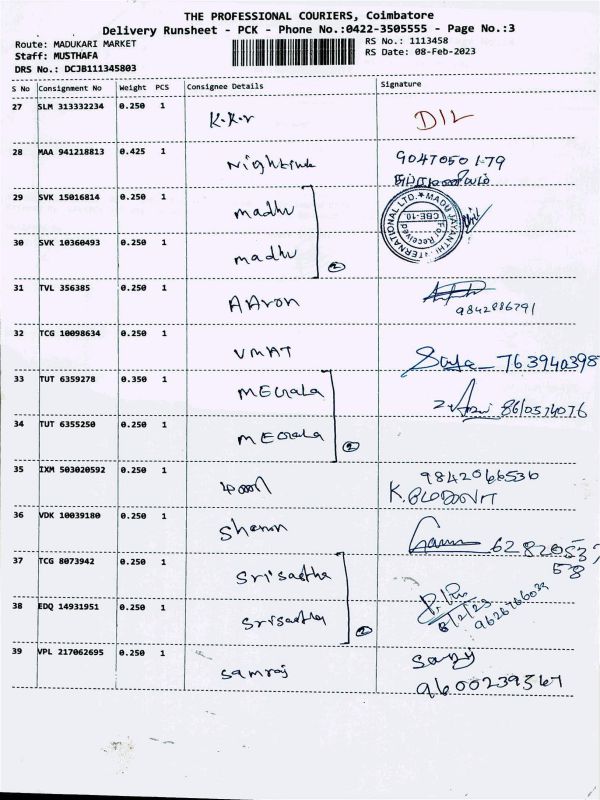 THE PROFESSIONAL COURIERS, Coimbatore
Delivery Runsheet - PCK - Phone No.:0422-3505555 - Page No.:3
Route: MADUKARI MARKET
RS No.: 1113458
Staff: MUSTHAFA
RS Date: 08-Feb-2023
DRS No.: DCJB111345803
S No Consignment No Weight PCS Consignee Details Signature
27 SLM 313332234 0.250 1 K.K.r DIL
28 MAA 941218813 0.425 1 9047050179
29 SVK 15016814 0.250 1 madhu
MADU JAYANTHI INTERNATIONAL LTD. ★
For Received
CBE-10
30 SVK 10360493 0.250 1 madhu
2
31 TVL 356385 0.250 1 AAron
9842886791
32 TCG 10098634 0.250 1 VMAT 763940398
33 TUT 6359278 0.350 1
34 TUT 6355250 0.250 1
2
35 IXM 503020592 0.250 1 9842066536
36 VDK 10039180 0.250 1 Sharon
37 TCG 8073942 0.250 1 Srisastha
38 EDQ 14931951 0.250 1 Srisastha 8/2/23
2
39 VPL 217062695 0.250 1 Samraj
9600239567